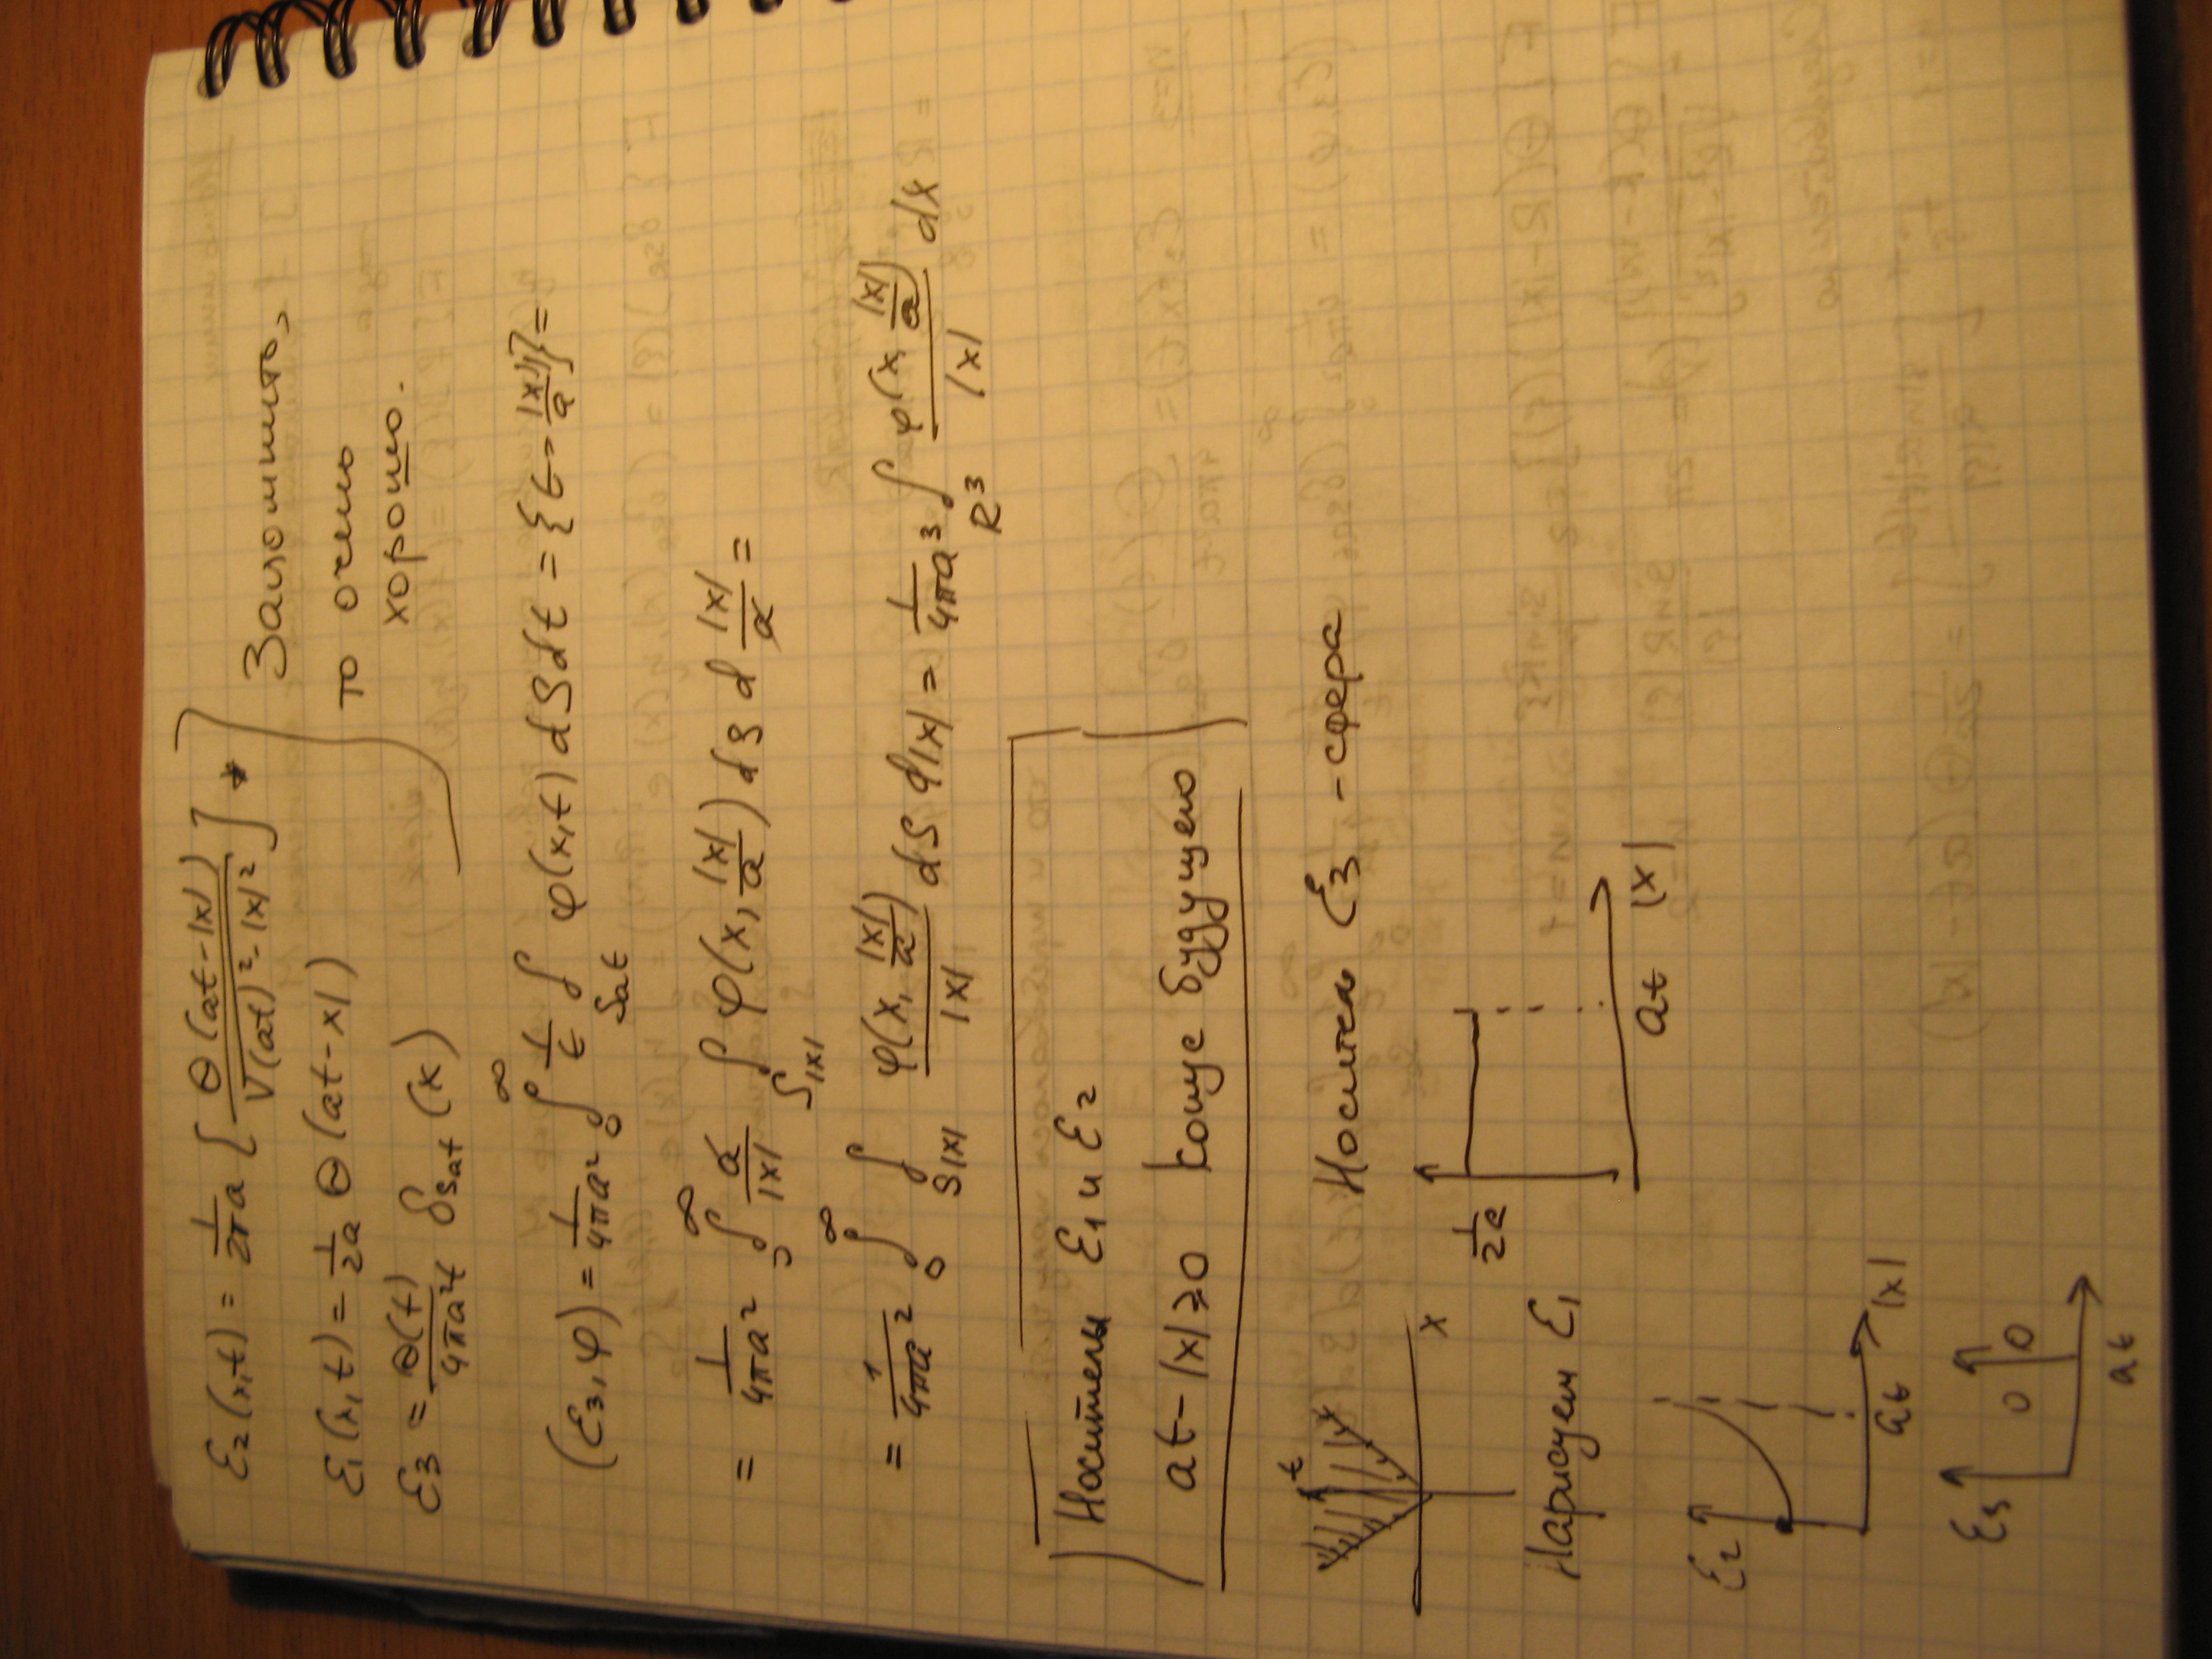 ε₂(x,t) = 1/(2πa) [ Θ(at-|x|) / √((at)²-|x|²) ] *
ε₁(x,t) = 1/(2a) Θ(at-|x|)
ε₃ = Θ(t)/(4πa²t) δ_{S_{at}}(x)
Запомнить,
то очень
хорошо.
(ε₃,φ) = 1/(4πa²) ∫₀^∞ 1/t ∫_{S_{at}} φ(x,t) dS dt = {t → |x|/a} =
= 1/(4πa²) ∫₀^∞ a/|x| ∫_{S_{|x|}} φ(x, |x|/a) dS d |x|/a =
= 1/(4πa²) ∫₀^∞ ∫_{S_{|x|}} φ(x, |x|/a)/|x| dS d|x| = 1/(4πa³) ∫_{R³} φ(x, |x|/a)/|x| dx
Носители ε₁ и ε₂
at-|x|≥0 конус будущего
t
x
Носитель ε₃ - сфера
Нарисуем ε₁
1/(2a)
at |x|
ε₂
at |x|
ε₃
0 0
at